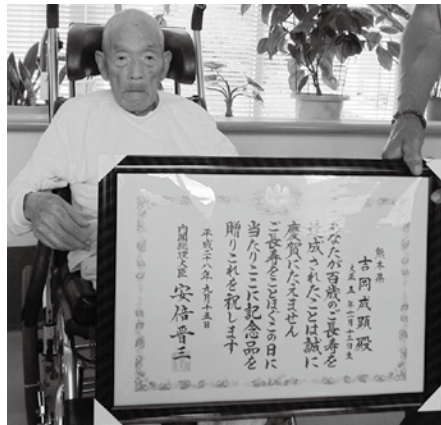 熊本県
吉岡成顕殿
大正 年十一月十三日生
あなたが百歳のご長寿を
達成されたことは誠に
慶賀にたえません
ご長寿をことほぐこの日に
当たりここに記念品を
贈りこれを祝します
平成二十八年九月十五日
内閣総理大臣 安倍晋三